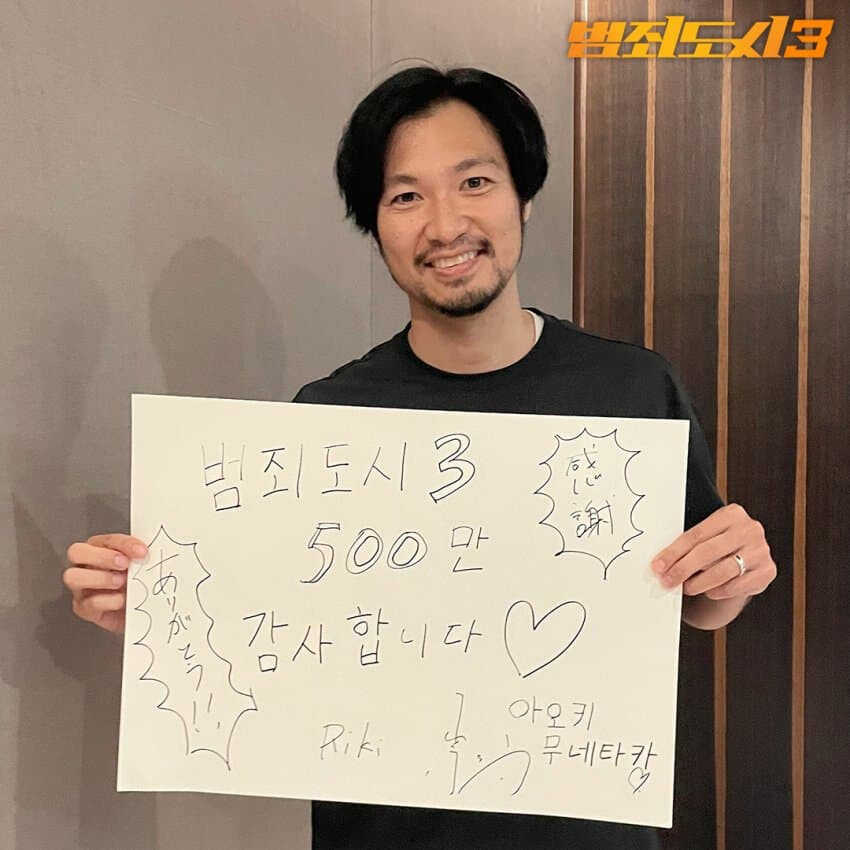 범죄도시3
범죄도시3
500만
감사합니다
感謝
ありがとう!!
Riki
아오키
무네타카